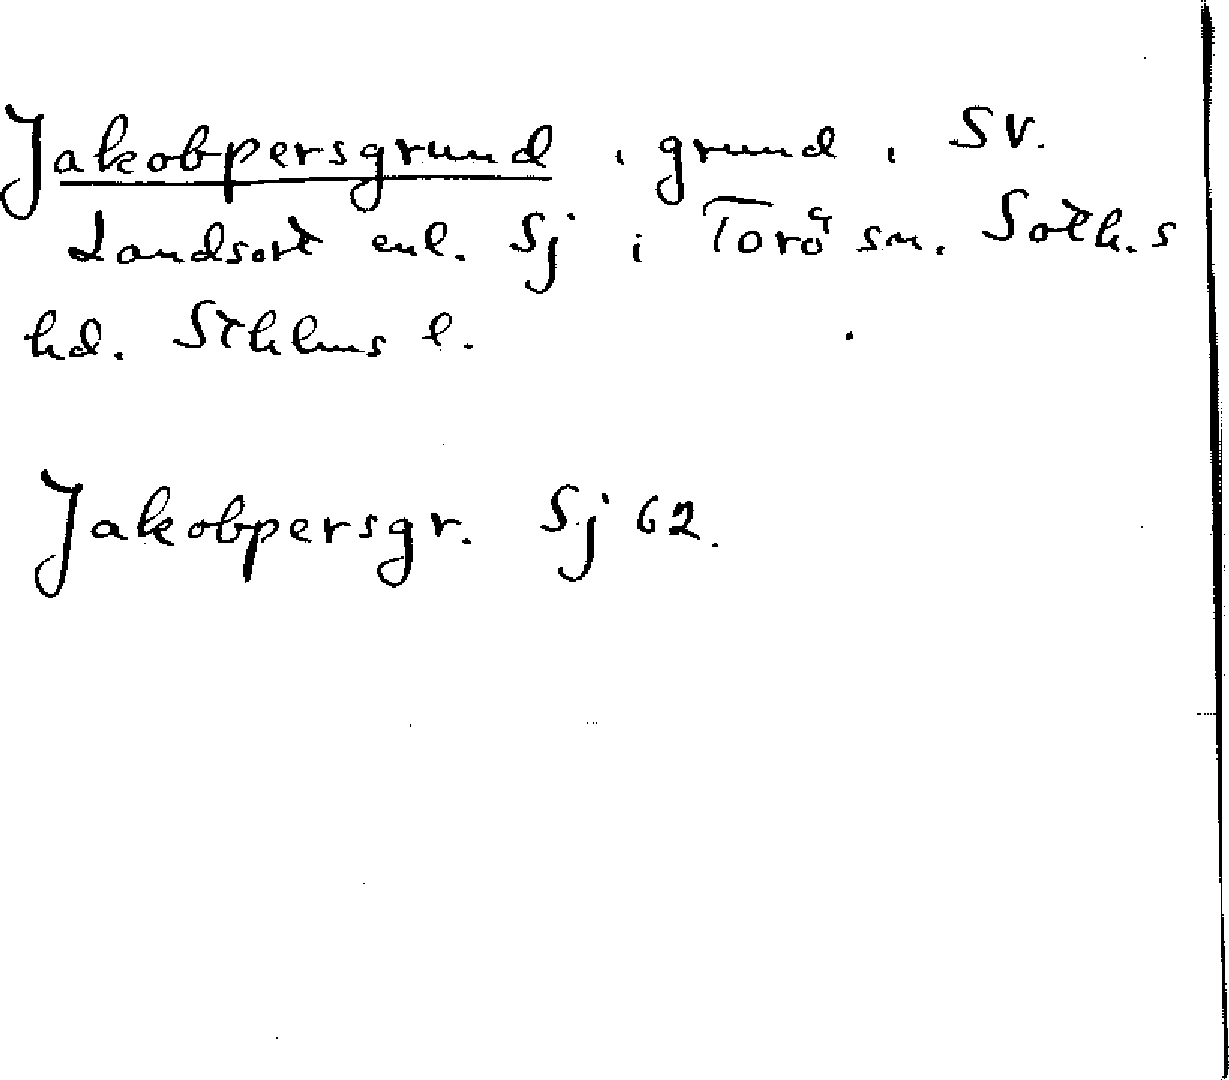 Jakobpersgrund, grund, SV.
Landsort enl. Sj i Torö sn. Soth.s
hd. Sthlms l.
Jakobpersgr. Sj 62.